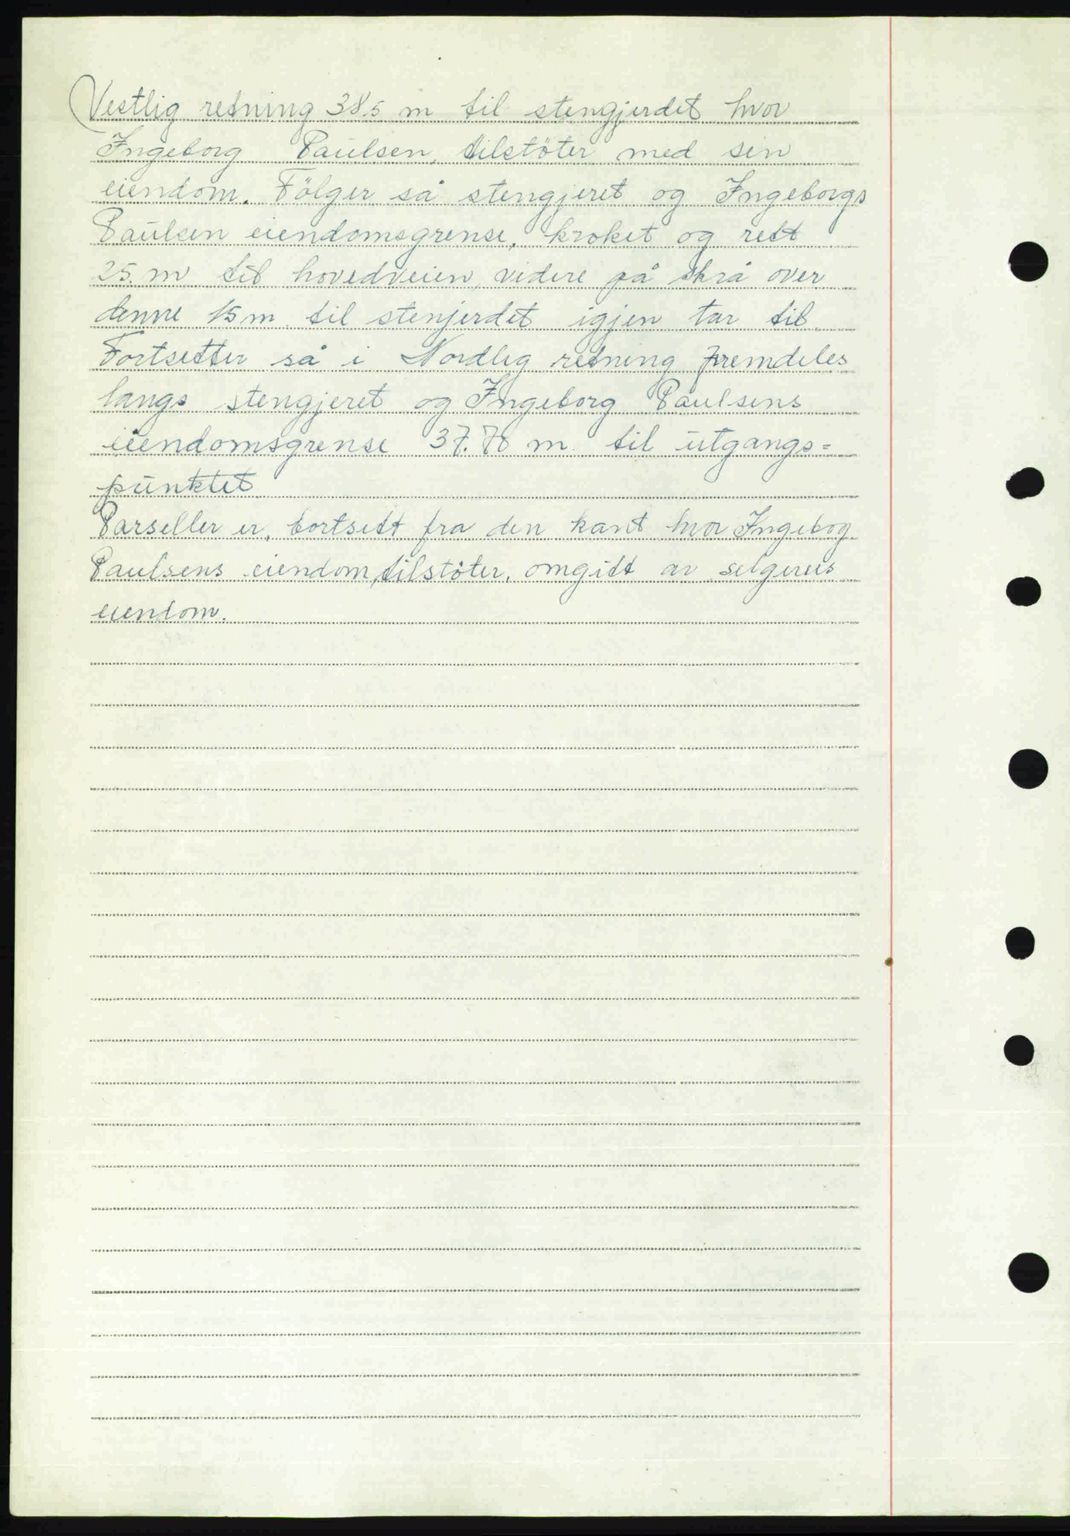 Vestlig retning 38.5 m til stengjerdet hvor
Ingeborg Paulsen, tilstöter med sin
eiendom. Fölger så stengjeret og Ingeborgs
Paulsen eiendomsgrense, kroket og rett
25. m til hovedveien, videre på skrå over
denne 15 m til stenjerdet igjen tar til.
Fortsetter så i Nordlig retning fremdeles
langs stengjeret og Ingeborg Paulsens
eiendomsgrense 37.70 m til utgangs=
punktet
Parseller er, bortsett fra den kant hvor Ingebog
Paulsens eiendom, tilstöter, omgitt av selgerens
eiendom.